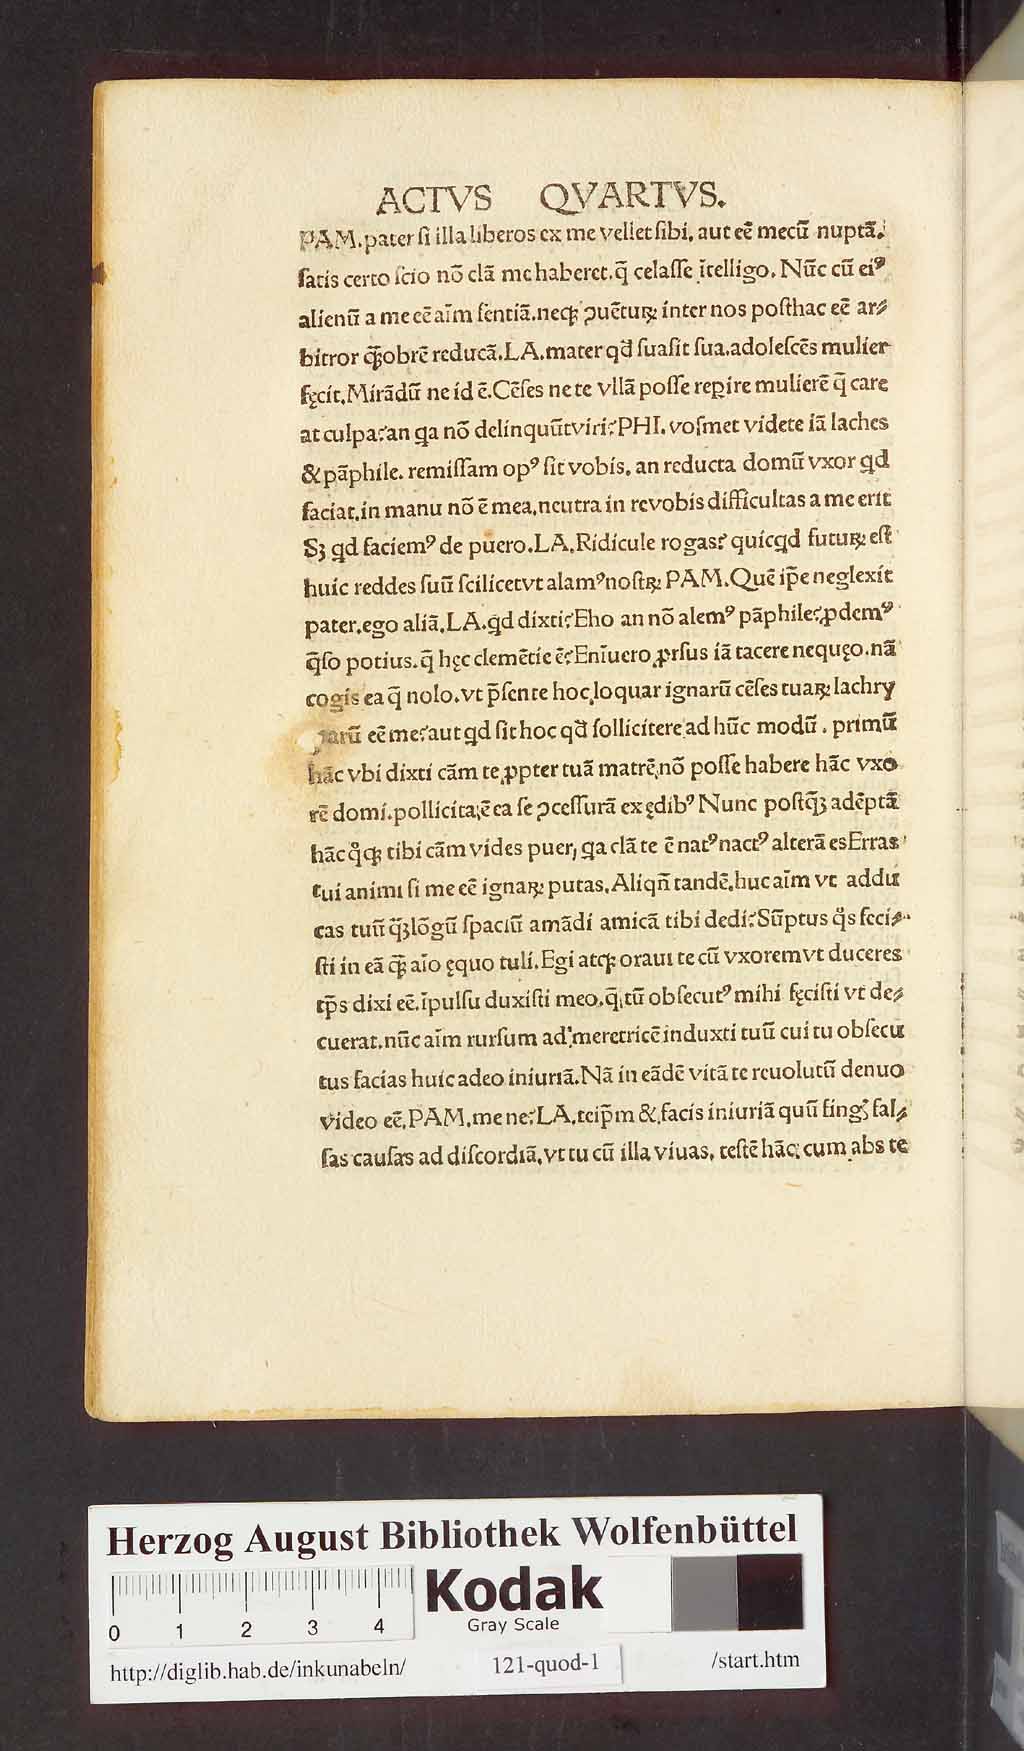 ACTVS QVARTVS.
PAM. pater ſi illa liberos ex me vellet ſibi. aut eē mecū nuptā.
ſatis certo ſcio nō clā me haberet. q̄ celaſſe ītelligo. Nūc cū eiꝰ
alienū a me eē aīm ſentiā. neqꝫ ꝯuētuꝝ inter nos poſthac eē ar⸗
bitror qꝫobrē reducā. LA. mater qd̄ ſuaſit ſua. adoleſcēs mulier
fęcit. Mirādū ne id ē. Cēſes ne te vllā poſſe reꝑire mulierē q̄ care
at culpa? an qa nō delinquūt viri? PHI. voſmet videte iā laches
& pāphile. remiſſam opꝰ ſit vobis. an reducta domū vxor qd
faciat. in manu nō ē mea. neutra in re vobis difficultas a me erit
Sꝫ qd faciemꝰ de puero. LA. Ridicule rogas? quicqd futuꝝ eſt
huic reddes ſuū ſcilicet vt alamꝰ noſtꝝ PAM. Quē ip̄e neglexit
pater. ego aliā. LA. qd dixti? Eho an nō alemꝰ pāphile? ꝓdemꝰ
q̄ſo potius. q̄ hęc clemētie ē? Enīuero ꝓrſus iā tacere nequęo. nā
cogis ea q̄ nolo. vt p̄ſente hoc loquar ignarū cēſes tuaꝝ lachry
marū eē me? aut qd ſit hoc qd̄ ſollicitere ad hūc modū. primū
hāc vbi dixti cām te ꝓpter tuā matrē nō poſſe habere hāc vxo
rē domi. pollicita ē ea ſe ꝯceſſurā ex ędibꝰ Nunc poſtqꝫ adēptā
hāc qͦqꝫ tibi cām vides puer, qa clā te ē natꝰ nactꝰ alterā es Erras
tui animi ſi me eē ignaꝝ putas. Aliqn̄ tandē huc aīm vt addu
cas tuū qꝫ lōgū ſpaciū amādi amicā tibi dedi? Sūptus qͦs feci⸗
ſti in eā qꝫ aīo ęquo tuli. Egi atqꝫ oraui te cū vxorem vt duceres
tp̄s dixi eē. īpulſu duxiſti meo. q̄ tū obſecutꝰ mihi fęciſti vt de⸗
cuerat. nūc aīm rurſum ad meretricē induxti tuū cui tu obſecu
tus facias huic adeo iniuriā. Nā in eādē vitā te reuolutū denuo
video eē. PAM. me ne? LA. teip̄m & facis iniuriā quū fingꝭ fal⸗
ſas cauſas ad diſcordiā. vt tu cū illa viuas. teſtē hāc cum abs te
Herzog August Bibliothek Wolfenbüttel
0 1 2 3 4
Kodak
Gray Scale
http://diglib.hab.de/inkunabeln/ 121-quod-1 /start.htm